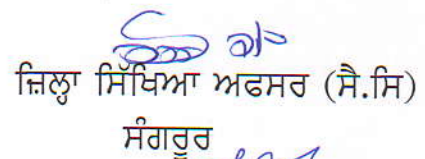 ਜ਼ਿਲ੍ਹਾ ਸਿੱਖਿਆ ਅਫਸਰ (ਸੈ.ਸਿ)
ਸੰਗਰੂਰ